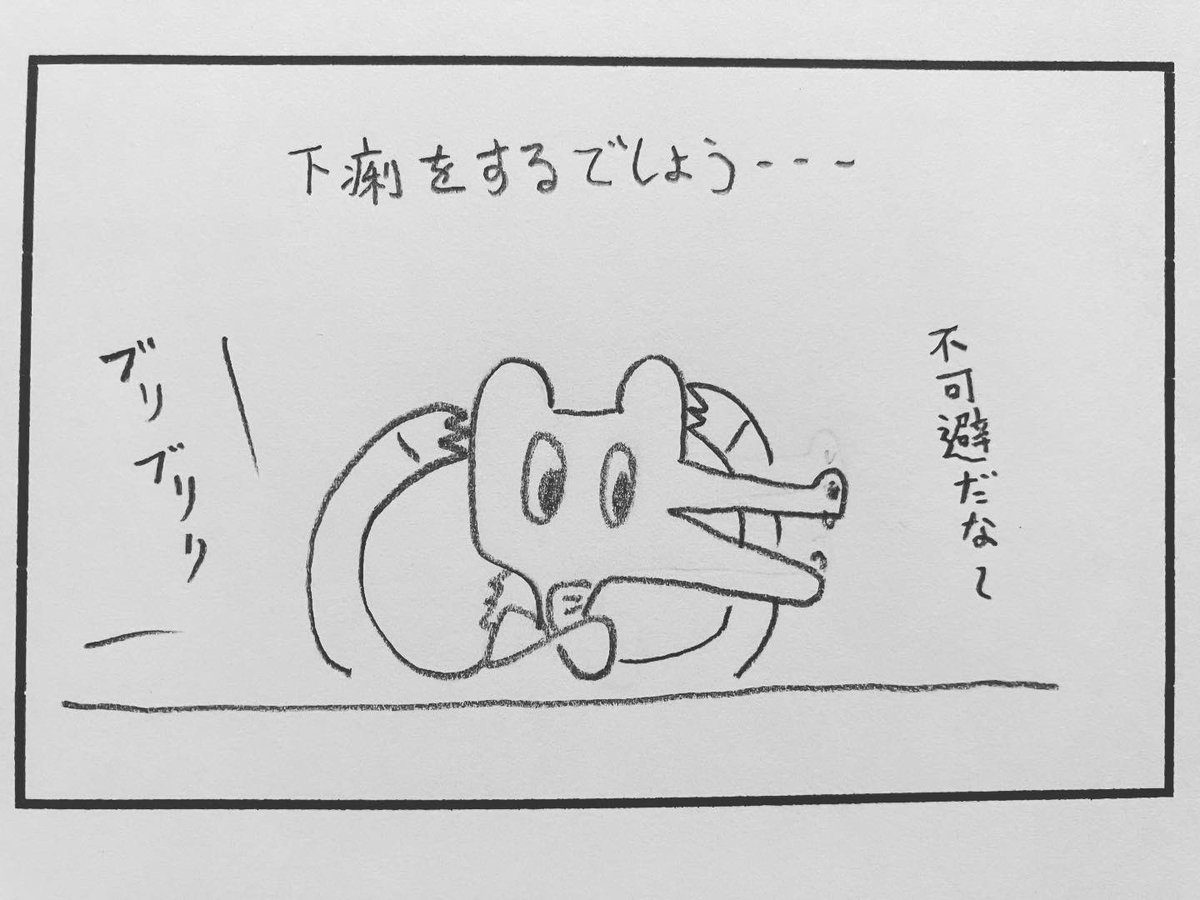 下痢をするでしよう---
不可避だな〜
ブリブリリリ